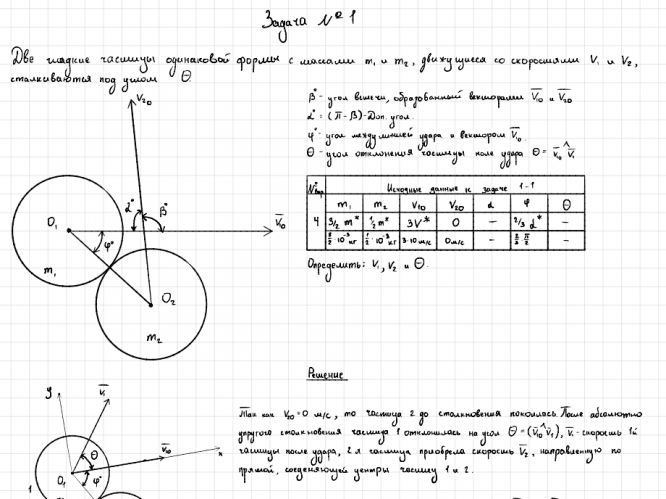 Задача №1
Две гладкие частицы одинаковой формы с массами m₁ и m₂, движущиеся со скоростями V₁ и V₂,
сталкиваются под углом Θ
V₂₀
β° - угол встречи, образованный векторами V̅₁₀ и V̅₂₀
α° = (π - β) - Доп. угол.
φ° - угол между линией удара и вектором V̅₁₀.
Θ - угол отклонения частицы после удара Θ = V̅₁₀ ^ V̅₁
O₁ α° β° V̅₁₀
φ°
m₁
O₂
m₂
№ вар. Исходные данные к задаче 1-1
m₁ m₂ V₁₀ V₂₀ α φ Θ
4 3/2 m* 1/2 m* 3V* 0 – 2/3 α* –
3/2·10⁻³ кг 1/2·10⁻³ кг 3·10 м/с 0 м/с – 2/3 π/2 –
Определить: V₁, V₂ и Θ.
Решение
y V̅₁
Так как V₂₀ = 0 м/с, то частица 2 до столкновения покоилась. После абсолютно
упругого столкновения частица 1 отклонилась на угол Θ = (V̅₁₀ ^ V̅₁), V̅₁ - скорость 1й
частицы после удара, 2я частица приобрела скорость V̅₂, направленную по
прямой, соединяющей центры частиц 1 и 2.
Θ V̅₁₀ x
O₁ φ°
1